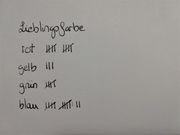 Lieblingsfarbe
rot 𝍸 𝍸
gelb |||
grün 𝍸
blau 𝍸 𝍸 ||